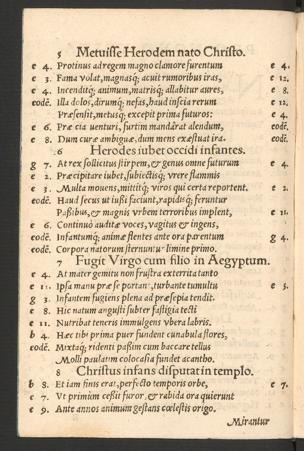 5 Metuisse Herodem nato Christo.
e 4. Protinus ad regem magno clamore furentum e 4.
e 3. Fama volat, magnasq; acuit rumoribus iras, e 12.
e 4. Incenditq; animum, matrisq; allabitur aures, e 8.
eodē. Illa dolos, dirumq; nefas, haud inscia rerum e 12.
Præsensit, metusq; excepit prima futuros: e 4.
e 6. Præcia venturi, furtim mandârat alendum, eodē.
e 8. Dum curæ ambiguæ, dum mens exæstuat ira. eodē.
6 Herodes iubet occidi infantes.
g 7. At rex sollicitus stirpem, & genus omne futurum e 4.
e 2. Præcipitare iubet, subiectisq; vrere flammis
e 3. Multa mouens, mittitq; viros qui certa reportent. e 2.
eodē. Haud secus ut iussi faciunt, rapidisq; feruntur
Passibus, & magnis vrbem terroribus implent, e 11.
e 6. Continuò auditæ voces, vagitus & ingens,
eodē. Infantumq; animæ flentes ante ora parentum g 4.
eodē. Corpora natorum sternuntur limine primo.
7 Fugit Virgo cum filio in Aegyptum.
e 4. At mater gemitu non frustra exterrita tanto
e 11. Ipsa manu præ se portans, turbante tumultu e 3.
g 3. Infantem fugiens plena ad præsepia tendit.
e 8. Hic natum angusti subter fastigia tecti
e 11. Nutribat teneris immulgens vbera labris.
b 4. Hæc tibi prima puer fundent cunabula flores,
eodē. Mixtaq; ridenti passim cum baccare tellus
Molli paulatim colocasia fundet acantho.
8 Christus infans disputat in templo.
b 8. Et iam finis erat, perfecto temporis orbe, e 7.
e 7. Vt primùm cessit furor, & rabida ora quierunt
e 9. Ante annos animum gestans cælestis origo.
Mirantur